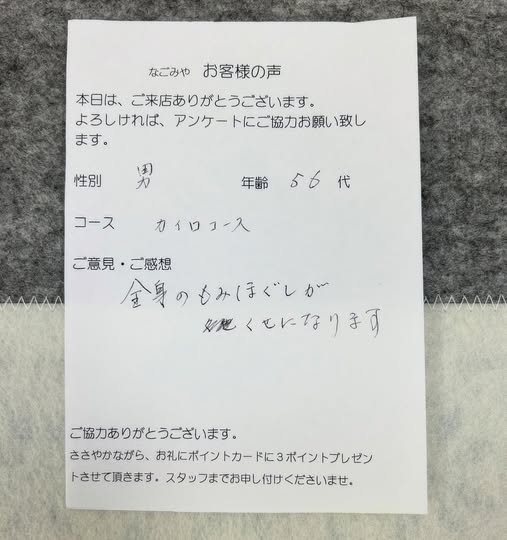 なごみや お客様の声
本日は、ご来店ありがとうございます。
よろしければ、アンケートにご協力お願い致し
ます。
性別 男 年齢 56 代
コース カイロコース
ご意見・ご感想
全身のもみほぐしが
くせになります
ご協力ありがとうございます。
ささやかながら、お礼にポイントカードに３ポイントプレゼン
トさせて頂きます。スタッフまでお申し付けくださいませ。